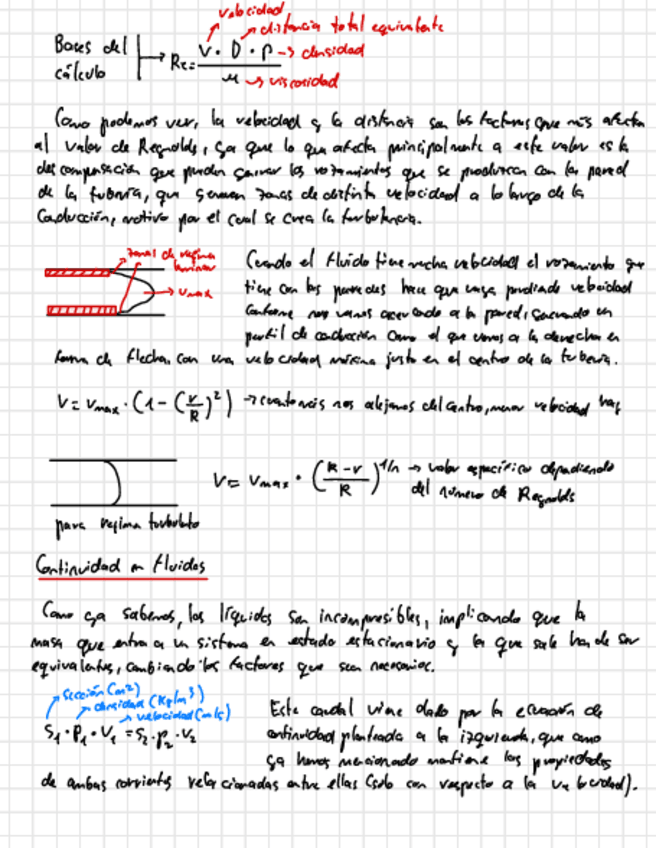 velocidad
distancia total equivalente
Bases del cálculo → Re = V · D · ρ → densidad
μ → viscosidad
Como podemos ver, la velocidad y la distancia son los factores que más afectan
al valor de Reynolds, ya que lo que afecta principalmente a este valor es la
descompensación que pueden generar los rozamientos que se produzcan con la pared
de la tubería, que generan zonas de distinta velocidad a lo largo de la
conducción, motivo por el cual se crea la turbulencia.
zonas de régimen
laminar
vmax
Cuando el fluido tiene mucha velocidad el rozamiento que
tiene con las paredes hace que vaya perdiendo velocidad
conforme nos vamos acercando a la pared, generando un
perfil de conducción como el que vemos a la derecha en
forma de flecha, con una velocidad máxima justo en el centro de la tubería.
V = Vmax · (1 - (r/R)²) → cuanto más nos alejamos del centro, menor velocidad hay
V = Vmax · ((R-r)/R)^1/n → valor específico dependiendo
del número de Reynolds
para régimen turbulento
Continuidad en fluidos
Como ya sabemos, los líquidos son incompresibles, implicando que la
masa que entra a un sistema en estado estacionario y la que sale han de ser
equivalentes, cambiando los factores que sean necesarios.
sección (m²)
densidad (Kg/m³)
velocidad (m/s)
S₁ · ρ₁ · V₁ = S₂ · ρ₂ · V₂
Este caudal viene dado por la ecuación de
continuidad planteada a la izquierda, que como
ya hemos mencionado mantiene las propiedades
de ambas corrientes relacionadas entre ellas (solo con respecto a la velocidad).